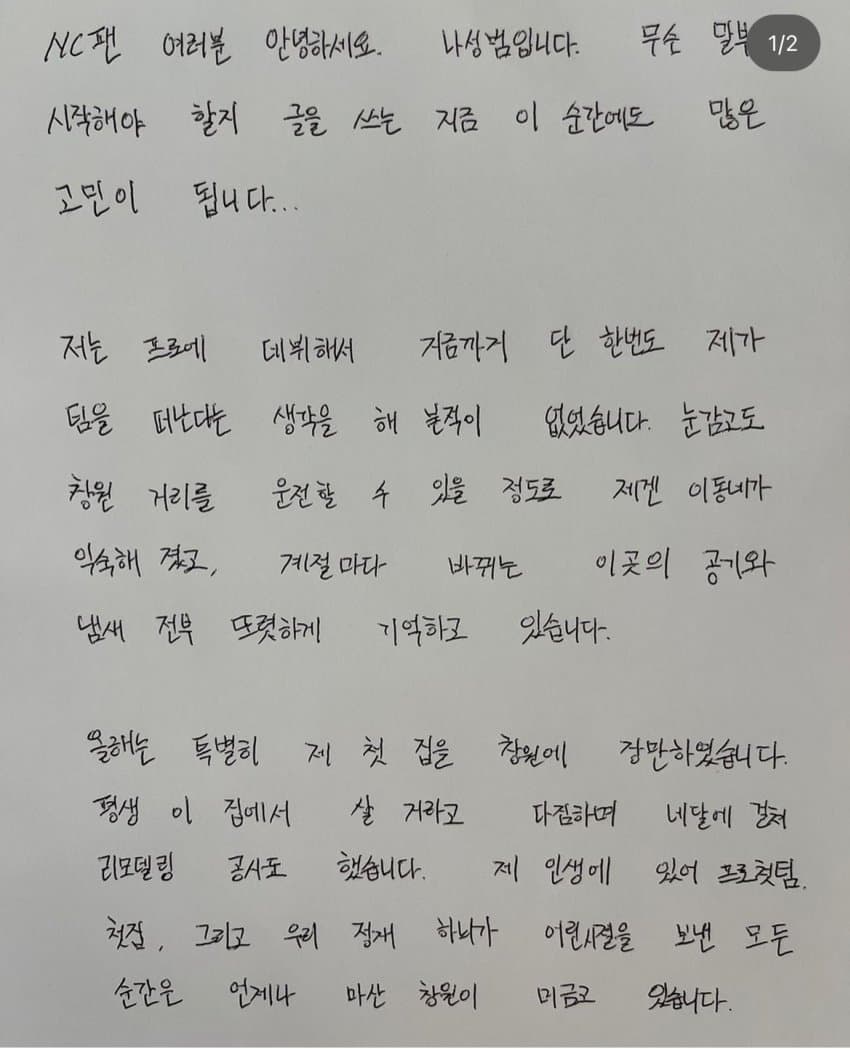 NC팬 여러분 안녕하세요. 나성범입니다. 무슨 말부
1/2
시작해야 할지 글을 쓰는 지금 이 순간에도 많은
고민이 됩니다...
저는 프로에 데뷔해서 지금까지 단 한번도 제가
팀을 떠난다는 생각을 해 본적이 없었습니다. 눈감고도
창원 거리를 운전할 수 있을 정도로 제겐 이동네가
익숙해 졌고, 계절마다 바뀌는 이곳의 공기와
냄새 전부 또렷하게 기억하고 있습니다.
올해는 특별히 제 첫 집을 창원에 장만하였습니다.
평생 이 집에서 살 거라고 다짐하며 네달에 걸쳐
리모델링 공사도 했습니다. 제 인생에 있어 프로첫팀.
첫집, 그리고 우리 정재 하나가 어린시절을 보낸 모든
순간은 언제나 마산 창원이
있습니다.